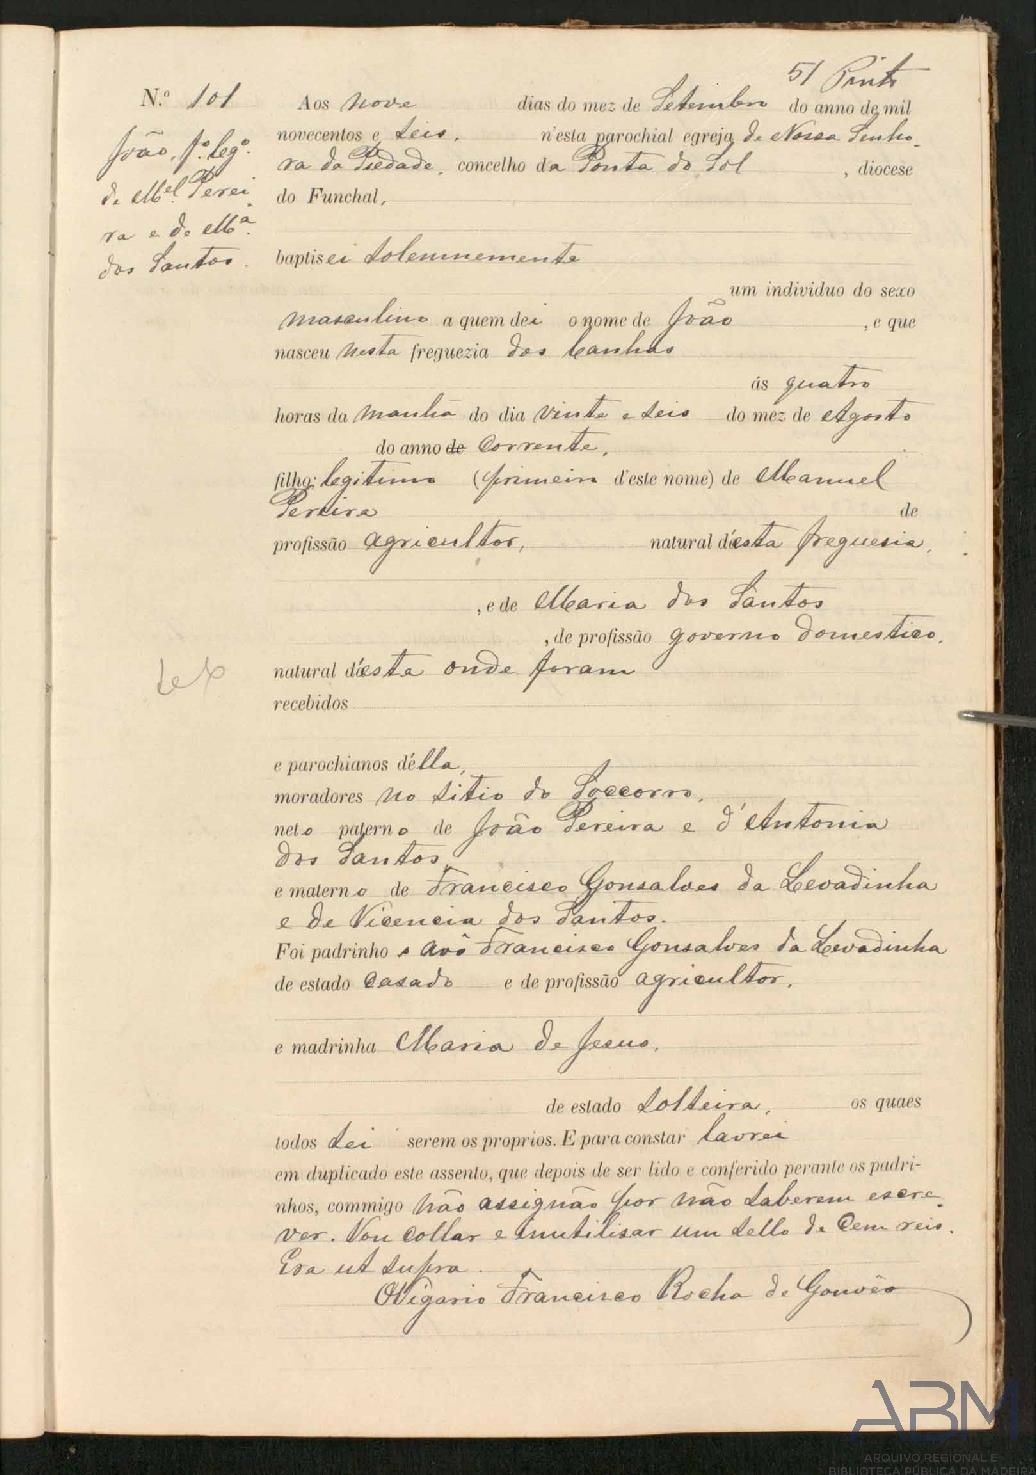 51 Pinto
N.º 101
João, f.º leg.º
de M.el Perei
ra e de M.ª
dos Santos.
Aos nove dias do mez de Setembro do anno de mil
novecentos e seis. n'esta parochial egreja de Nossa Senho-
ra da Piedade, concelho da Ponta do Sol, diocese
do Funchal,
baptisei solemnemente
um individuo do sexo
masculino a quem dei o nome de João, e que
nasceu nesta freguezia dos Canhas
ás quatro
horas da manhã do dia vinte e seis do mez de Agosto
do anno de corrente,
filho: legitimo (primeiro d'este nome) de Manuel
Pereira de
profissão agricultor, natural d'esta freguesia,
, e de Maria dos Santos
, de profissão governo domestico.
natural d'esta onde foram
recebidos
e parochianos d'ella,
moradores no sitio do Soccorro,
neto paterno de João Pereira e d'Antonia
dos Santos
e materno de Francisco Gonsalves da Levadinha
e de Vicencia dos Santos.
Foi padrinho o avô Francisco Gonsalves da Levadinha
de estado casado e de profissão agricultor,
e madrinha Maria de Jesus,
de estado solteira, os quaes
todos sei serem os proprios. E para constar lavrei
em duplicado este assento, que depois de ser lido e conferido perante os padri-
nhos, commigo não assignão por não saberem escre-
ver. Vou collar e inutilisar um sello de cem reis.
Era ut supra.
O Vigario Francisco Rocha de Gouvêa
ABM
ARQUIVO REGIONAL E
BIBLIOTECA PÚBLICA DA MADEIRA